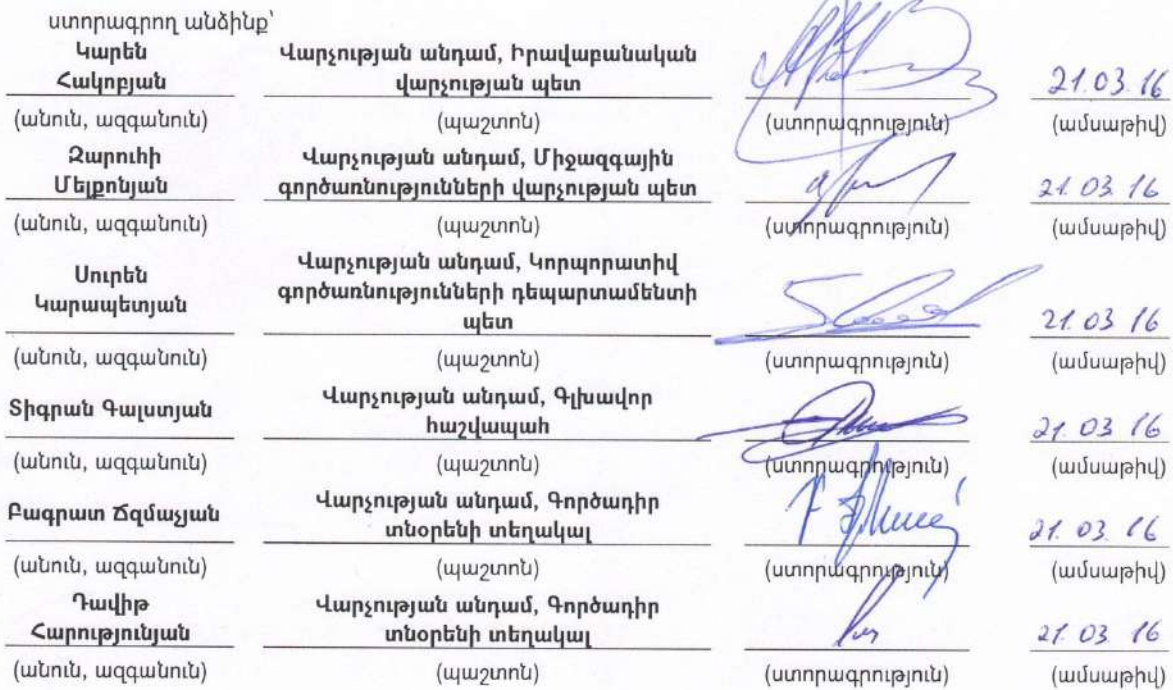 ստորագրող անձինք՝
Կարեն Հակոբյան Վարչության անդամ, Իրավաբանական վարչության պետ 21.03.16
(անուն, ազգանուն) (պաշտոն) (ստորագրություն) (ամսաթիվ)
Զարուհի Մելքոնյան Վարչության անդամ, Միջազգային գործառնությունների վարչության պետ 21.03.16
(անուն, ազգանուն) (պաշտոն) (ստորագրություն) (ամսաթիվ)
Սուրեն Կարապետյան Վարչության անդամ, Կորպորատիվ գործառնությունների դեպարտամենտի պետ 21.03 16
(անուն, ազգանուն) (պաշտոն) (ստորագրություն) (ամսաթիվ)
Տիգրան Գալստյան Վարչության անդամ, Գլխավոր հաշվապահ 21.03 16
(անուն, ազգանուն) (պաշտոն) (ստորագրություն) (ամսաթիվ)
Բագրատ Ճզմաչյան Վարչության անդամ, Գործադիր տնօրենի տեղակալ 21.03.16
(անուն, ազգանուն) (պաշտոն) (ստորագրություն) (ամսաթիվ)
Դավիթ Հարությունյան Վարչության անդամ, Գործադիր տնօրենի տեղակալ 21.03.16
(անուն, ազգանուն) (պաշտոն) (ստորագրություն) (ամսաթիվ)